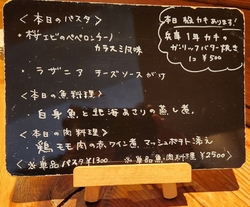 <本日のパスタ>
・桜エビのペペロンチーノ
カラスミ風味
・ラザニア チーズソースがけ
<本日の魚料理>
・白身魚と北海あさりの蒸し煮。
<本日の肉料理>
・鶏モモ肉の赤ワイン煮。マッシュポテト添え
※単品パスタ¥1300 ※単品魚・肉料理¥2500
本日 殻カキあります!
兵庫 1年カキの
ガーリックバター焼き
1コ ¥500